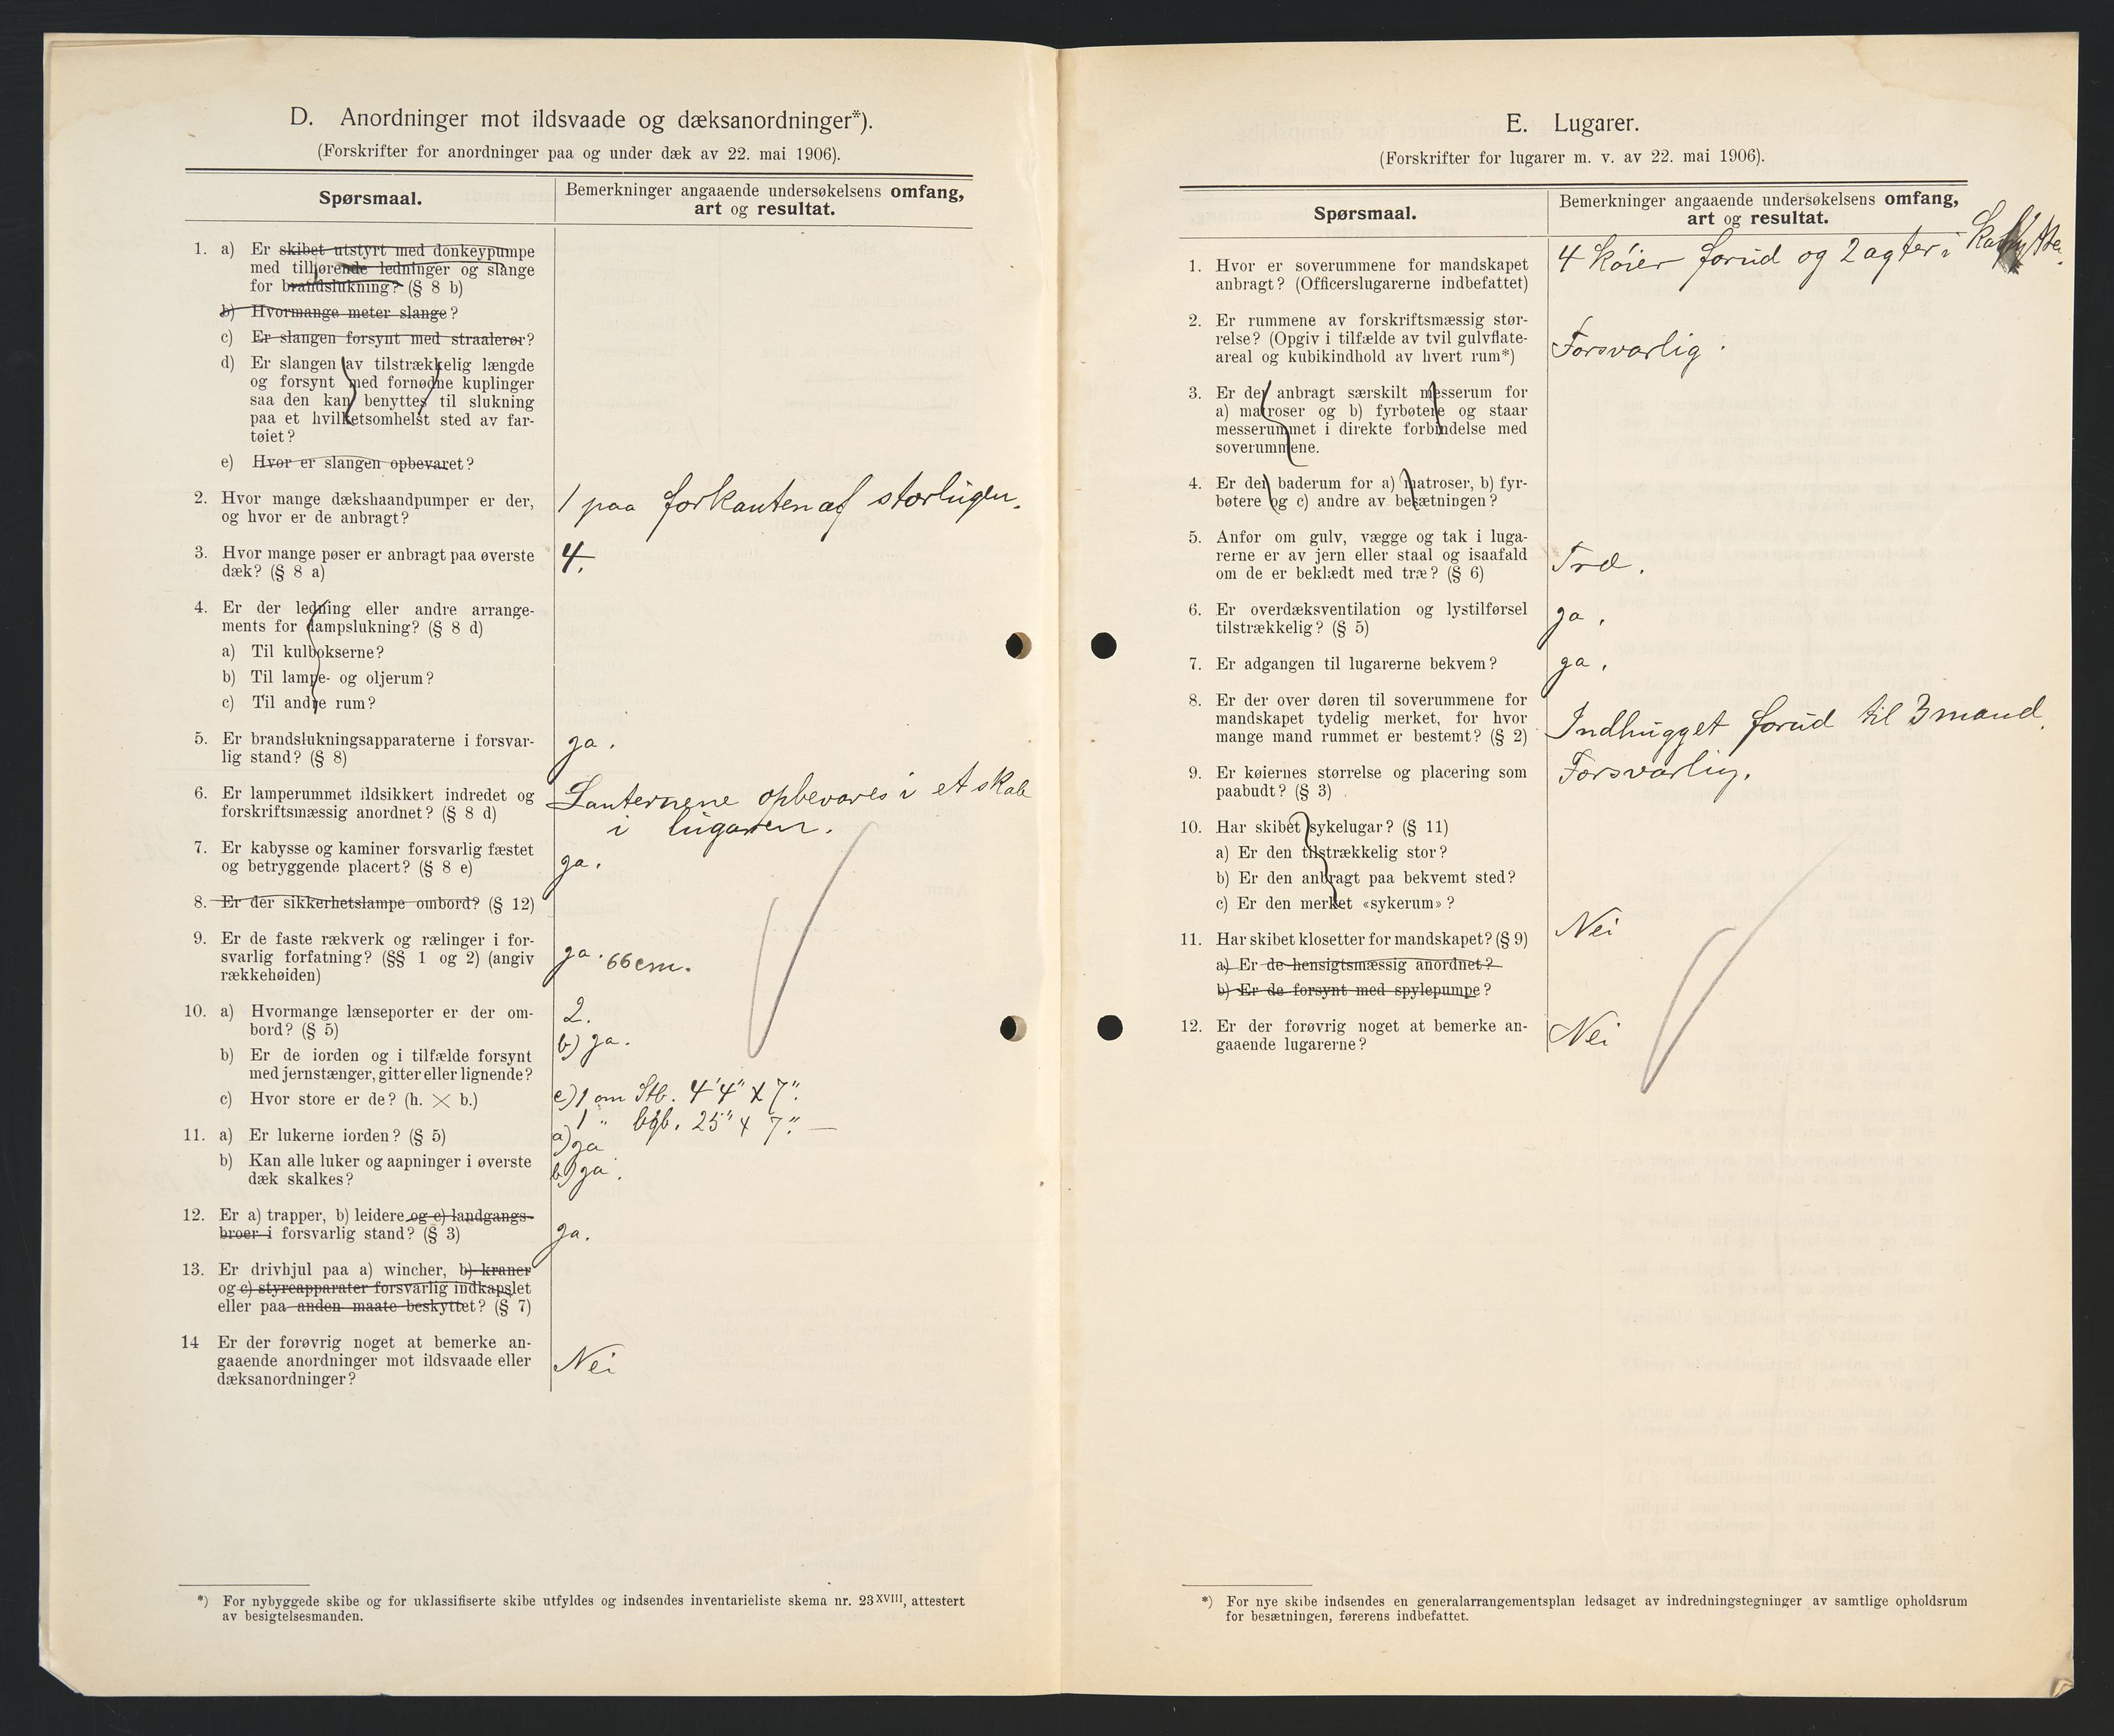 D. Anordninger mot ildsvaade og dæksanordninger*).
(Forskrifter for anordninger paa og under dæk av 22. mai 1906).
Spørsmaal.
Bemerkninger angaaende undersøkelsens omfang,
art og resultat.
1. a) Er skibet utstyrt med donkeypumpe
med tilhørende ledninger og slange
for brandslukning? (§ 8 b)
b) Hvormange meter slange?
c) Er slangen forsynt med straalerør?
d) Er slangen av tilstrækkelig længde
og forsynt med fornødne kuplinger
saa den kan benyttes til slukning
paa et hvilketsomhelst sted av far-
tøiet?
e) Hvor er slangen opbevaret?
2. Hvor mange dækshaandpumper er der,
og hvor er de anbragt?
1 paa forkanten af storlugen.
3. Hvor mange pøser er anbragt paa øverste
dæk? (§ 8 a)
4.
4. Er der ledning eller andre arrange-
ments for dampslukning? (§ 8 d)
a) Til kulbokserne?
b) Til lampe- og oljerum?
c) Til andre rum?
5. Er brandslukningsapparaterne i forsvar-
lig stand? (§ 8)
ja.
6. Er lamperummet ildsikkert indredet og
forskriftsmæssig anordnet? (§ 8 d)
Lanternene opbevares i et skab
i lugaren.
7. Er kabysse og kaminer forsvarlig fæstet
og betryggende placert? (§ 8 e)
ja.
8. Er der sikkerhetslampe ombord? (§ 12)
9. Er de faste rækverk og rælinger i for-
svarlig forfatning? (§§ 1 og 2) (angiv
rækkehøiden)
ja. 66 cm.
10. a) Hvormange lænseporter er der om-
bord? (§ 5)
2.
b) Er de iorden og i tilfælde forsynt
med jernstænger, gitter eller lignende?
b) ja.
c) Hvor store er de? (h. × b.)
c) 1 om Stb. 4'4" x 7".
1 " bgb. 25" x 7". —
11. a) Er lukerne iorden? (§ 5)
a) ja
b) Kan alle luker og aapninger i øverste
dæk skalkes?
b) ja.
12. Er a) trapper, b) leidere og c) landgangs-
broer i forsvarlig stand? (§ 3)
ja.
13. Er drivhjul paa a) wincher, b) kraner
og c) styreapparater forsvarlig indkapslet
eller paa anden maate beskyttet? (§ 7)
14 Er der forøvrig noget at bemerke an-
gaaende anordninger mot ildsvaade eller
dæksanordninger?
Nei
*) For nybyggede skibe og for uklassifiserte skibe utfyldes og indsendes inventarieliste skema nr. 23XVIII, attestert
av besigtelsesmanden.
E. Lugarer.
(Forskrifter for lugarer m. v. av 22. mai 1906).
Spørsmaal.
Bemerkninger angaaende undersøkelsens omfang,
art og resultat.
1. Hvor er soverummene for mandskapet
anbragt? (Officerslugarerne indbefattet)
4 køier forud og 2 agter i
2. Er rummene av forskriftsmæssig stør-
relse? (Opgiv i tilfælde av tvil gulvflate-
areal og kubikindhold av hvert rum*)
Forsvarlig.
3. Er der anbragt særskilt messerum for
a) matroser og b) fyrbøtere og staar
messerummet i direkte forbindelse med
soverummene.
4. Er der baderum for a) matroser, b) fyr-
bøtere og c) andre av besætningen?
5. Anfør om gulv, vægge og tak i luga-
rerne er av jern eller staal og isaafald
om de er beklædt med træ? (§ 6)
Træ.
6. Er overdæksventilation og lystilførsel
tilstrækkelig? (§ 5)
ja.
7. Er adgangen til lugarerne bekvem?
ja.
8. Er der over døren til soverummene for
mandskapet tydelig merket, for hvor
mange mand rummet er bestemt? (§ 2)
Indhugget forud til 3 mand.
9. Er køiernes størrelse og placering som
paabudt? (§ 3)
Forsvarlig.
10. Har skibet sykelugar? (§ 11)
a) Er den tilstrækkelig stor?
b) Er den anbragt paa bekvemt sted?
c) Er den merket «sykerum»?
11. Har skibet klosetter for mandskapet? (§ 9)
Nei
a) Er de hensigtsmæssig anordnet?
b) Er de forsynt med spylepumpe?
12. Er der forøvrig noget at bemerke an-
gaaende lugarerne?
Nei
*) For nye skibe indsendes en generalarrangementsplan ledsaget av indredningstegninger av samtlige opholdsrum
for besætningen, førerens indbefattet.